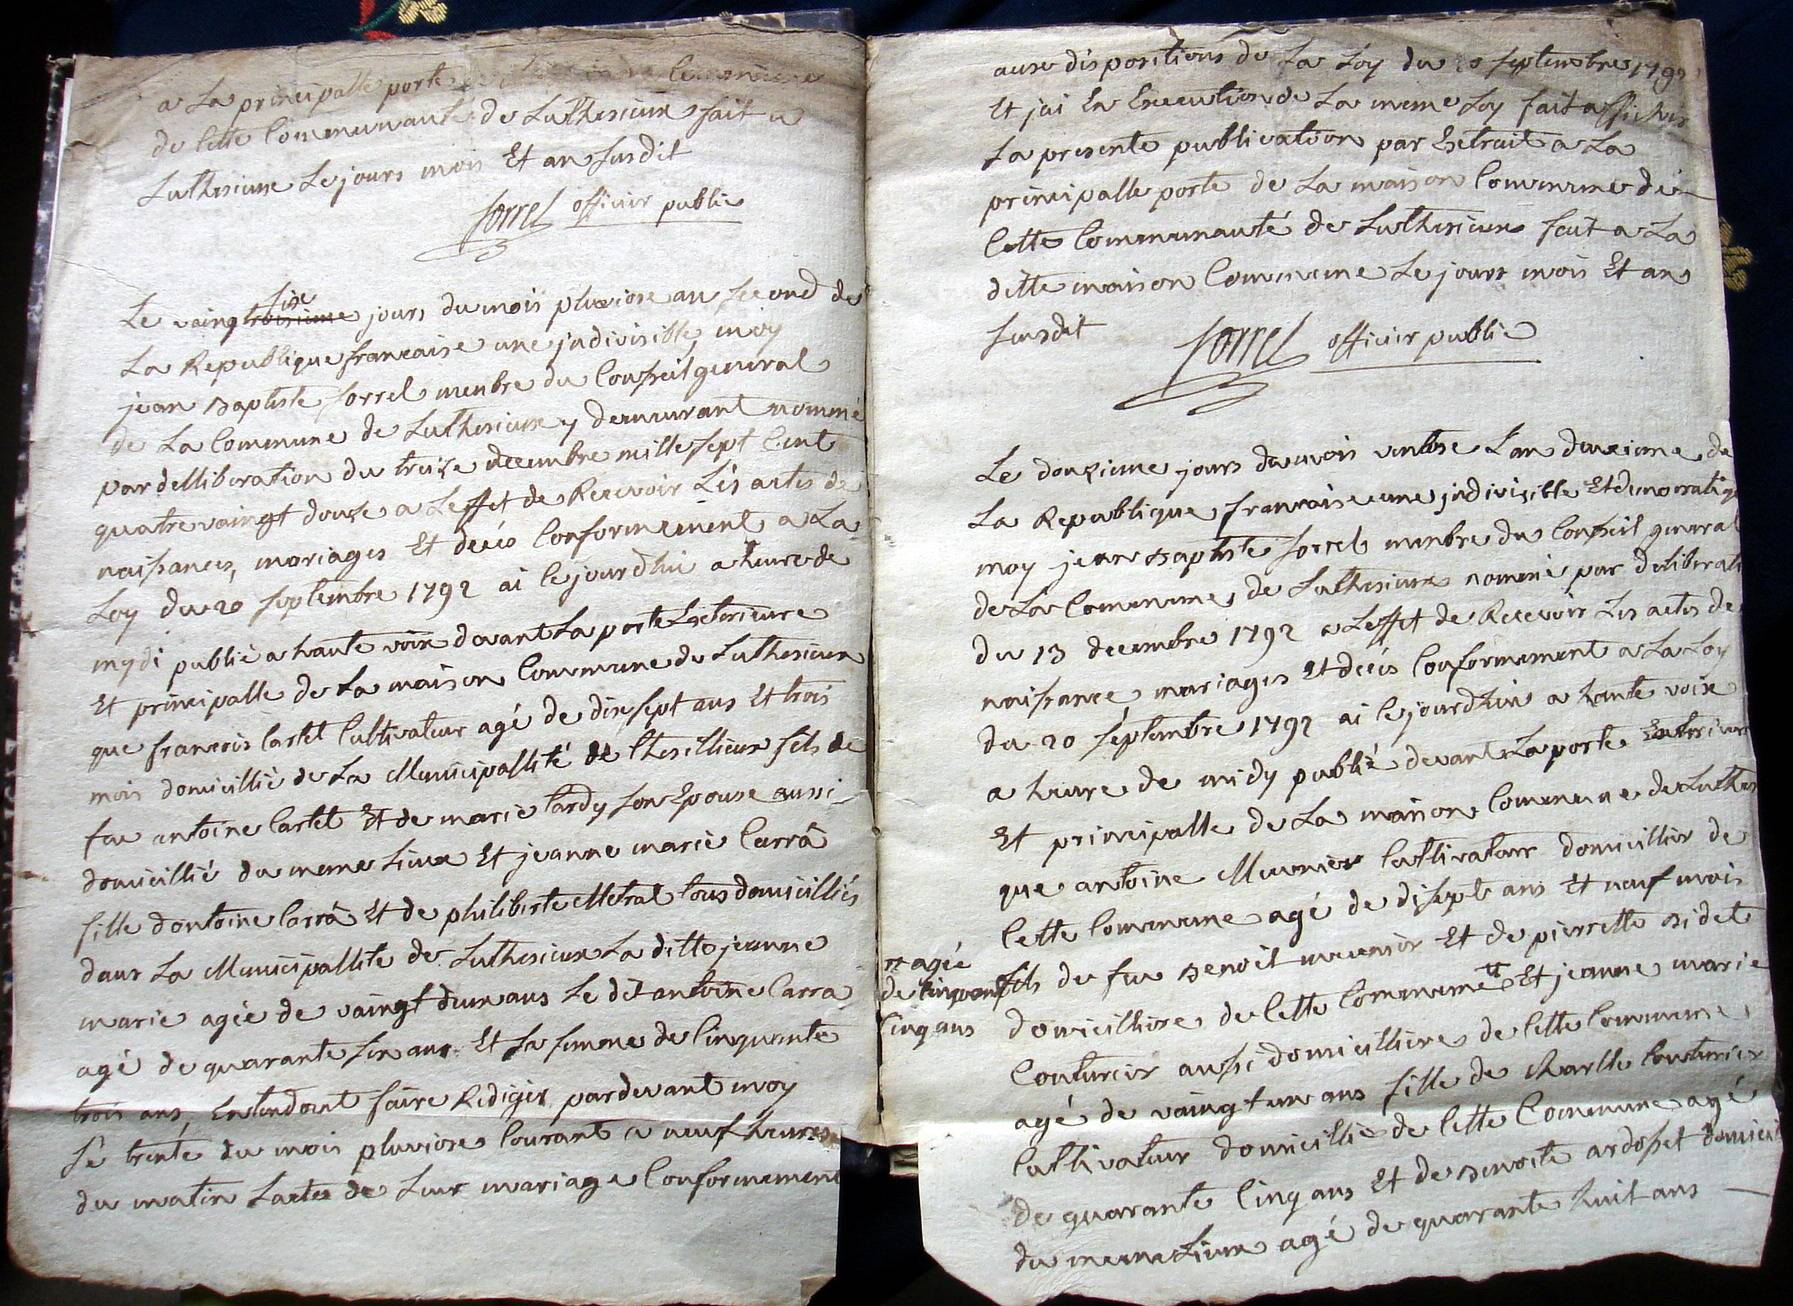 a La principalle porte
de Cette Communauté de Luthesieux fait a
Luthesieux Le jours mois Et an susdit
sorrel officier public
Le vaing troisieme six jours du mois pluviose an second de
La Republique francaise une jndivisible, moy
jean Baptiste sorrel menbre du Conseil general
de La Commune de Luthesieux y demeurant nommé
par delliberation du treize decembre mille sept Cent
quatre vaingt douze a Leffet de Recevoir Les actes de
naissances, mariages Et décés Conformement a La
Loy du 20 septembre 1792 ai Cejourdhui a heure de
mydi publié a haute voix devant La porte Exterieure
Et principalle de La maison Commune de Luthesieux
que francois Cartet Cultivateur agé de dix sept ans Et trois
mois domicillié de La Municipallité de Chesillieux fils de
feu antoine Cartet Et de marie tardy son Epouse aussi
domicillié du meme Lieux Et jeanne marie Carrâ
fille dantoine Carrâ Et de philiberte Metral tous domicilliés
dans La Municipallité de Luthesieux La ditte jeanne
marie agée de vaingt deux ans Le dit antoine Carra
agé de quarante six ans Et sa femme de Cinquante
trois ans, Entendent faire Rediger pardevant moy
Le trente du mois pluviose Courant a neuf heures
du matin Lactes de Leur mariage Conformement
aux dispositions de La Loy du 20 septembre 1792
Et jai En Execution de La meme Loy fait afficher
La presente publication par Extrait a La
principalle porte de La maison Commune de
Cette Communauté de Luthesieux fait a La
ditte maison Commune Le jours mois Et an
susdit sorrel officier public
Le douzieme jours du mois ventose Lan deuxieme de
La Republique francaise une jndivisible Et democratique
moy jean Baptiste sorrel menbre du Conseil general
de La Commune de Luthesieux nommé par deliberati
du 13 decembre 1792 a Leffet de Recevoir Les actes de
naissance, mariages Et décés Conformement a La Loy
du 20 septembre 1792 ai Cejourdhui a haute voix
a heure de midy publié devant La porte Exterieure
Et principalle de La maison Commune de Luthes
que antoine Meunier Cultivateur domicillier de
Cette Commune agé de disept ans Et neuf mois
fils de feu Benoit meunier Et de pierrette Bidet
agée
de Cinquante
Cinq ans
domicilliere de Cette Commune Et jeanne marie
Couturier aussi domicilliere de Cette Commune,
agé de vaingt un ans fille de Charlle Couturier
Cultivateur domicillié de Cette Commune agé
de quarante Cinq ans Et de Benoite ardosset domicil
du meme Lieux agé de quarante huit ans